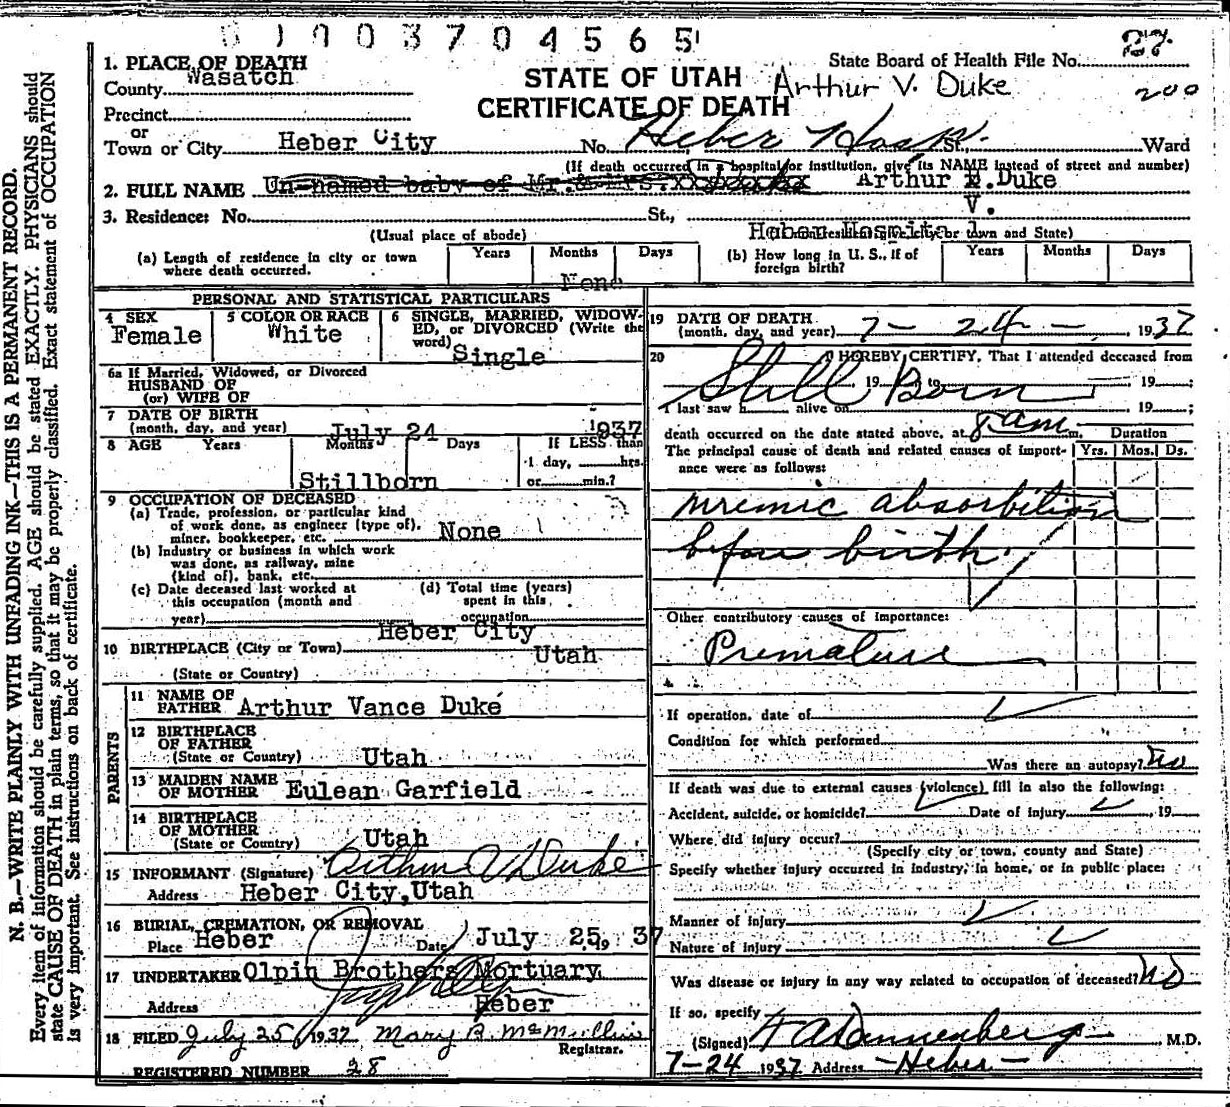 0100370456 5
1. PLACE OF DEATH
County Wasatch
State Board of Health File No.
STATE OF UTAH Arthur V. Duke
200
CERTIFICATE OF DEATH
Precinct
or
Town or City Heber City No. Heber Hosp. St., Ward
(If death occurred in a hospital or institution, give its NAME instead of street and number)
2. FULL NAME Un-named baby of Mr. & Mrs. Arthur D. Duke
V.
3. Residence: No. St., Heber Hospital
(Usual place of abode)
(a) Length of residence in city or town where death occurred. Years Months Days
None
(b) How long in U. S., if of foreign birth? Years Months Days
PERSONAL AND STATISTICAL PARTICULARS
4 SEX Female
5 COLOR OR RACE White
6 SINGLE, MARRIED, WIDOWED, or DIVORCED (Write the word) Single
6a If Married, Widowed, or Divorced
HUSBAND OF
(or) WIFE OF
7 DATE OF BIRTH
(month, day, and year) July 24 1937
8 AGE Years Months Days If LESS than
1 day, hrs.
Stillborn or min.?
9 OCCUPATION OF DECEASED
(a) Trade, profession, or particular kind
of work done, as engineer (type of),
miner, bookkeeper, etc. None
(b) Industry or business in which work
was done, as railway, mine
(kind of), bank, etc.
(c) Date deceased last worked at
this occupation (month and
year)
(d) Total time (years)
spent in this
occupation
10 BIRTHPLACE (City or Town) Heber City
(State or Country) Utah
PARENTS
11 NAME OF
FATHER Arthur Vance Duke
12 BIRTHPLACE
OF FATHER
(State or Country) Utah
13 MAIDEN NAME
OF MOTHER Eulean Garfield
14 BIRTHPLACE
OF MOTHER
(State or Country) Utah
15 INFORMANT (Signature) Arthur V Duke
Address Heber City, Utah
16 BURIAL, CREMATION, OR REMOVAL
Place Heber Date July 25, 37
17 UNDERTAKER Olpin Brothers Mortuary
Address Heber
18 FILED July 25 1937 Mary B. McMullin
Registrar.
REGISTERED NUMBER 28
19 DATE OF DEATH
(month, day, and year) 7- 24 - 1937
20 I HEREBY CERTIFY, That I attended deceased from
Still Born 19 to , 19 ;
I last saw h alive on , 19 ;
death occurred on the date stated above, at 8 am m. Duration
The principal cause of death and related causes of importance were as follows: Yrs. Mos. Ds.
uremic absorbition
before birth.
Other contributory causes of importance:
Premature
If operation, date of
Condition for which performed
Was there an autopsy? No
If death was due to external causes (violence) fill in also the following:
Accident, suicide, or homicide? Date of injury , 19
Where did injury occur?
(Specify city or town, county and State)
Specify whether injury occurred in industry, in home, or in public place:
Manner of injury
Nature of injury
Was disease or injury in any way related to occupation of deceased? No
If so, specify
(Signed) H A Dannenberg , M.D.
7-24 1937 Address -Heber-
N. B.—WRITE PLAINLY WITH UNFADING INK—THIS IS A PERMANENT RECORD.
Every item of information should be carefully supplied. AGE should be stated EXACTLY. PHYSICIANS should
state CAUSE OF DEATH in plain terms, so that it may be properly classified. Exact statement of OCCUPATION
is very important. See instructions on back of certificate.